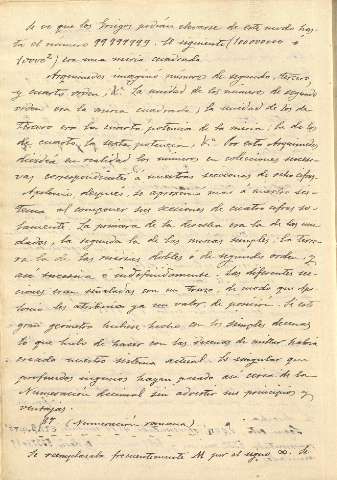 Se ve que los Griegos podian elevarse de este modo has-
ta el numero 99999999. El siguiente (100000000 o
10000²) era una miria cuadrada
Arquimedes imagino numeros de segundo, tercero,
y cuarto orden, &. La unidad de los numeros de segundo
orden era la miria cuadrada; la unidad de los de
tercero era la cuarta potencia de la miria; la de los
de cuarto, la sexta potencia, &. Por esto Arquimedes
dividia en realidad los numeros en colecciones sucesi-
vas correspondientes a nuestras secciones de ocho cifras.
Apolonio, despues, se aproximo más á nuestro sis-
tema al componer sus secciones de cuatro cifras so-
lamente. La primera de la derecha era la de las uni-
dades, la segunda la de las mirias simples; la terce-
ra la de las mirias dobles ó de segundo orden, y
así sucesiva e indefinidamente. Las diferentes sec-
ciones eran señaladas con un trazo: de modo que Apo-
lonio les atribuia ya un valor de posición. Si este
gran geometra hubiese hecho con las simples decenas
lo que hubo de hacer con las decenas de millar, habria
creado nuestro sistema actual. Es singular que
profundos ingenios hayan pasado así cerca de la
Numeración decimal sin advertir sus principios y
ventajas.
(Numeración romana)
Se reemplazaba frecuentemente M por el signo ∞. Se